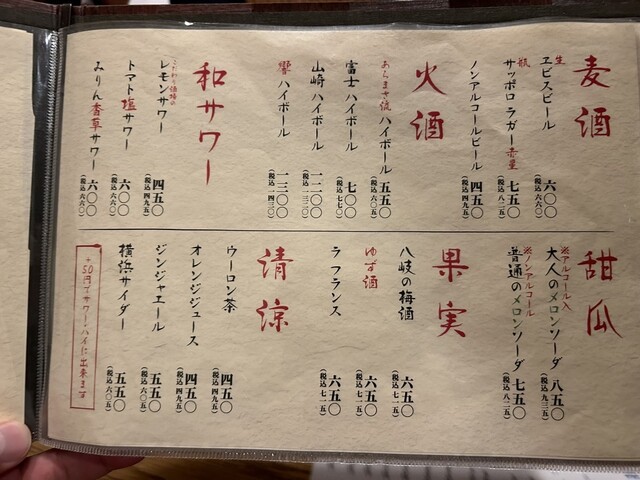 麦酒
生
ヱビスビール
六〇〇
(税込 六六〇)
瓶
サッポロ ラガー 赤星
七五〇
(税込 八二五)
ノンアルコールビール
四五〇
(税込 四九五)
火酒
ハイボール
五五〇
(税込 六〇五)
富士ハイボール
七〇〇
(税込 七七〇)
山崎ハイボール
一二〇〇
(税込 一三二〇)
響ハイボール
一三〇〇
(税込 一四三〇)
和サワー
こだわり酒場の
レモンサワー
四五〇
(税込 四九五)
トマト塩サワー
六〇〇
(税込 六六〇)
みりん香草サワー
六〇〇
(税込 六六〇)
甜瓜
※アルコール入
大人のメロンソーダ
八五〇
(税込 九三五)
※ノンアルコール
普通のメロンソーダ
七五〇
(税込 八二五)
果実
八岐の梅酒
六五〇
(税込 七一五)
ゆず酒
六五〇
(税込 七一五)
ラ フランス
六五〇
(税込 七一五)
清涼
ウーロン茶
四五〇
(税込 四九五)
オレンジジュース
四五〇
(税込 四九五)
ジンジャエール
五五〇
(税込 六〇五)
横浜サイダー
五五〇
(税込 六〇五)
+50円でサワー・ハイに出来ます